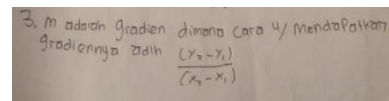 3. m adalah gradien dimana cara u/ mendapatkan
gradiennya adlh (y₂-y₁)
(x₂-x₁)